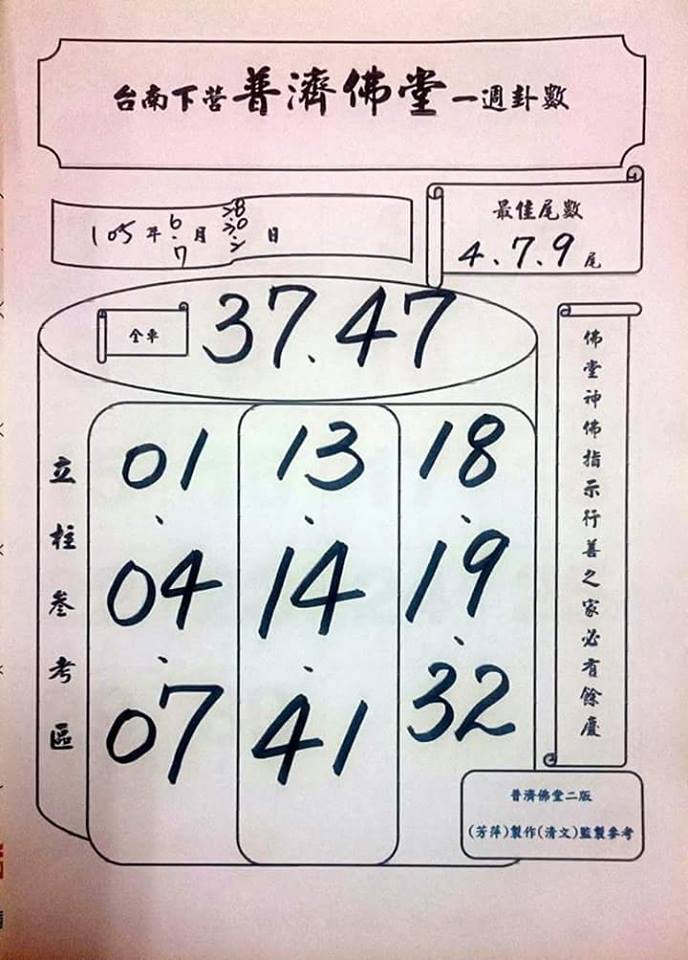 台南下營普濟佛堂一週卦數
105年 6.7 月 28.30.2 日
最佳尾數
4、7、9尾
全車
37、47
立柱叁考區
01、04、07
13、14、41
18、19、32
佛堂神佛指示行善之家必有餘慶
普濟佛堂二版
(芳萍)製作(清文)監製參考